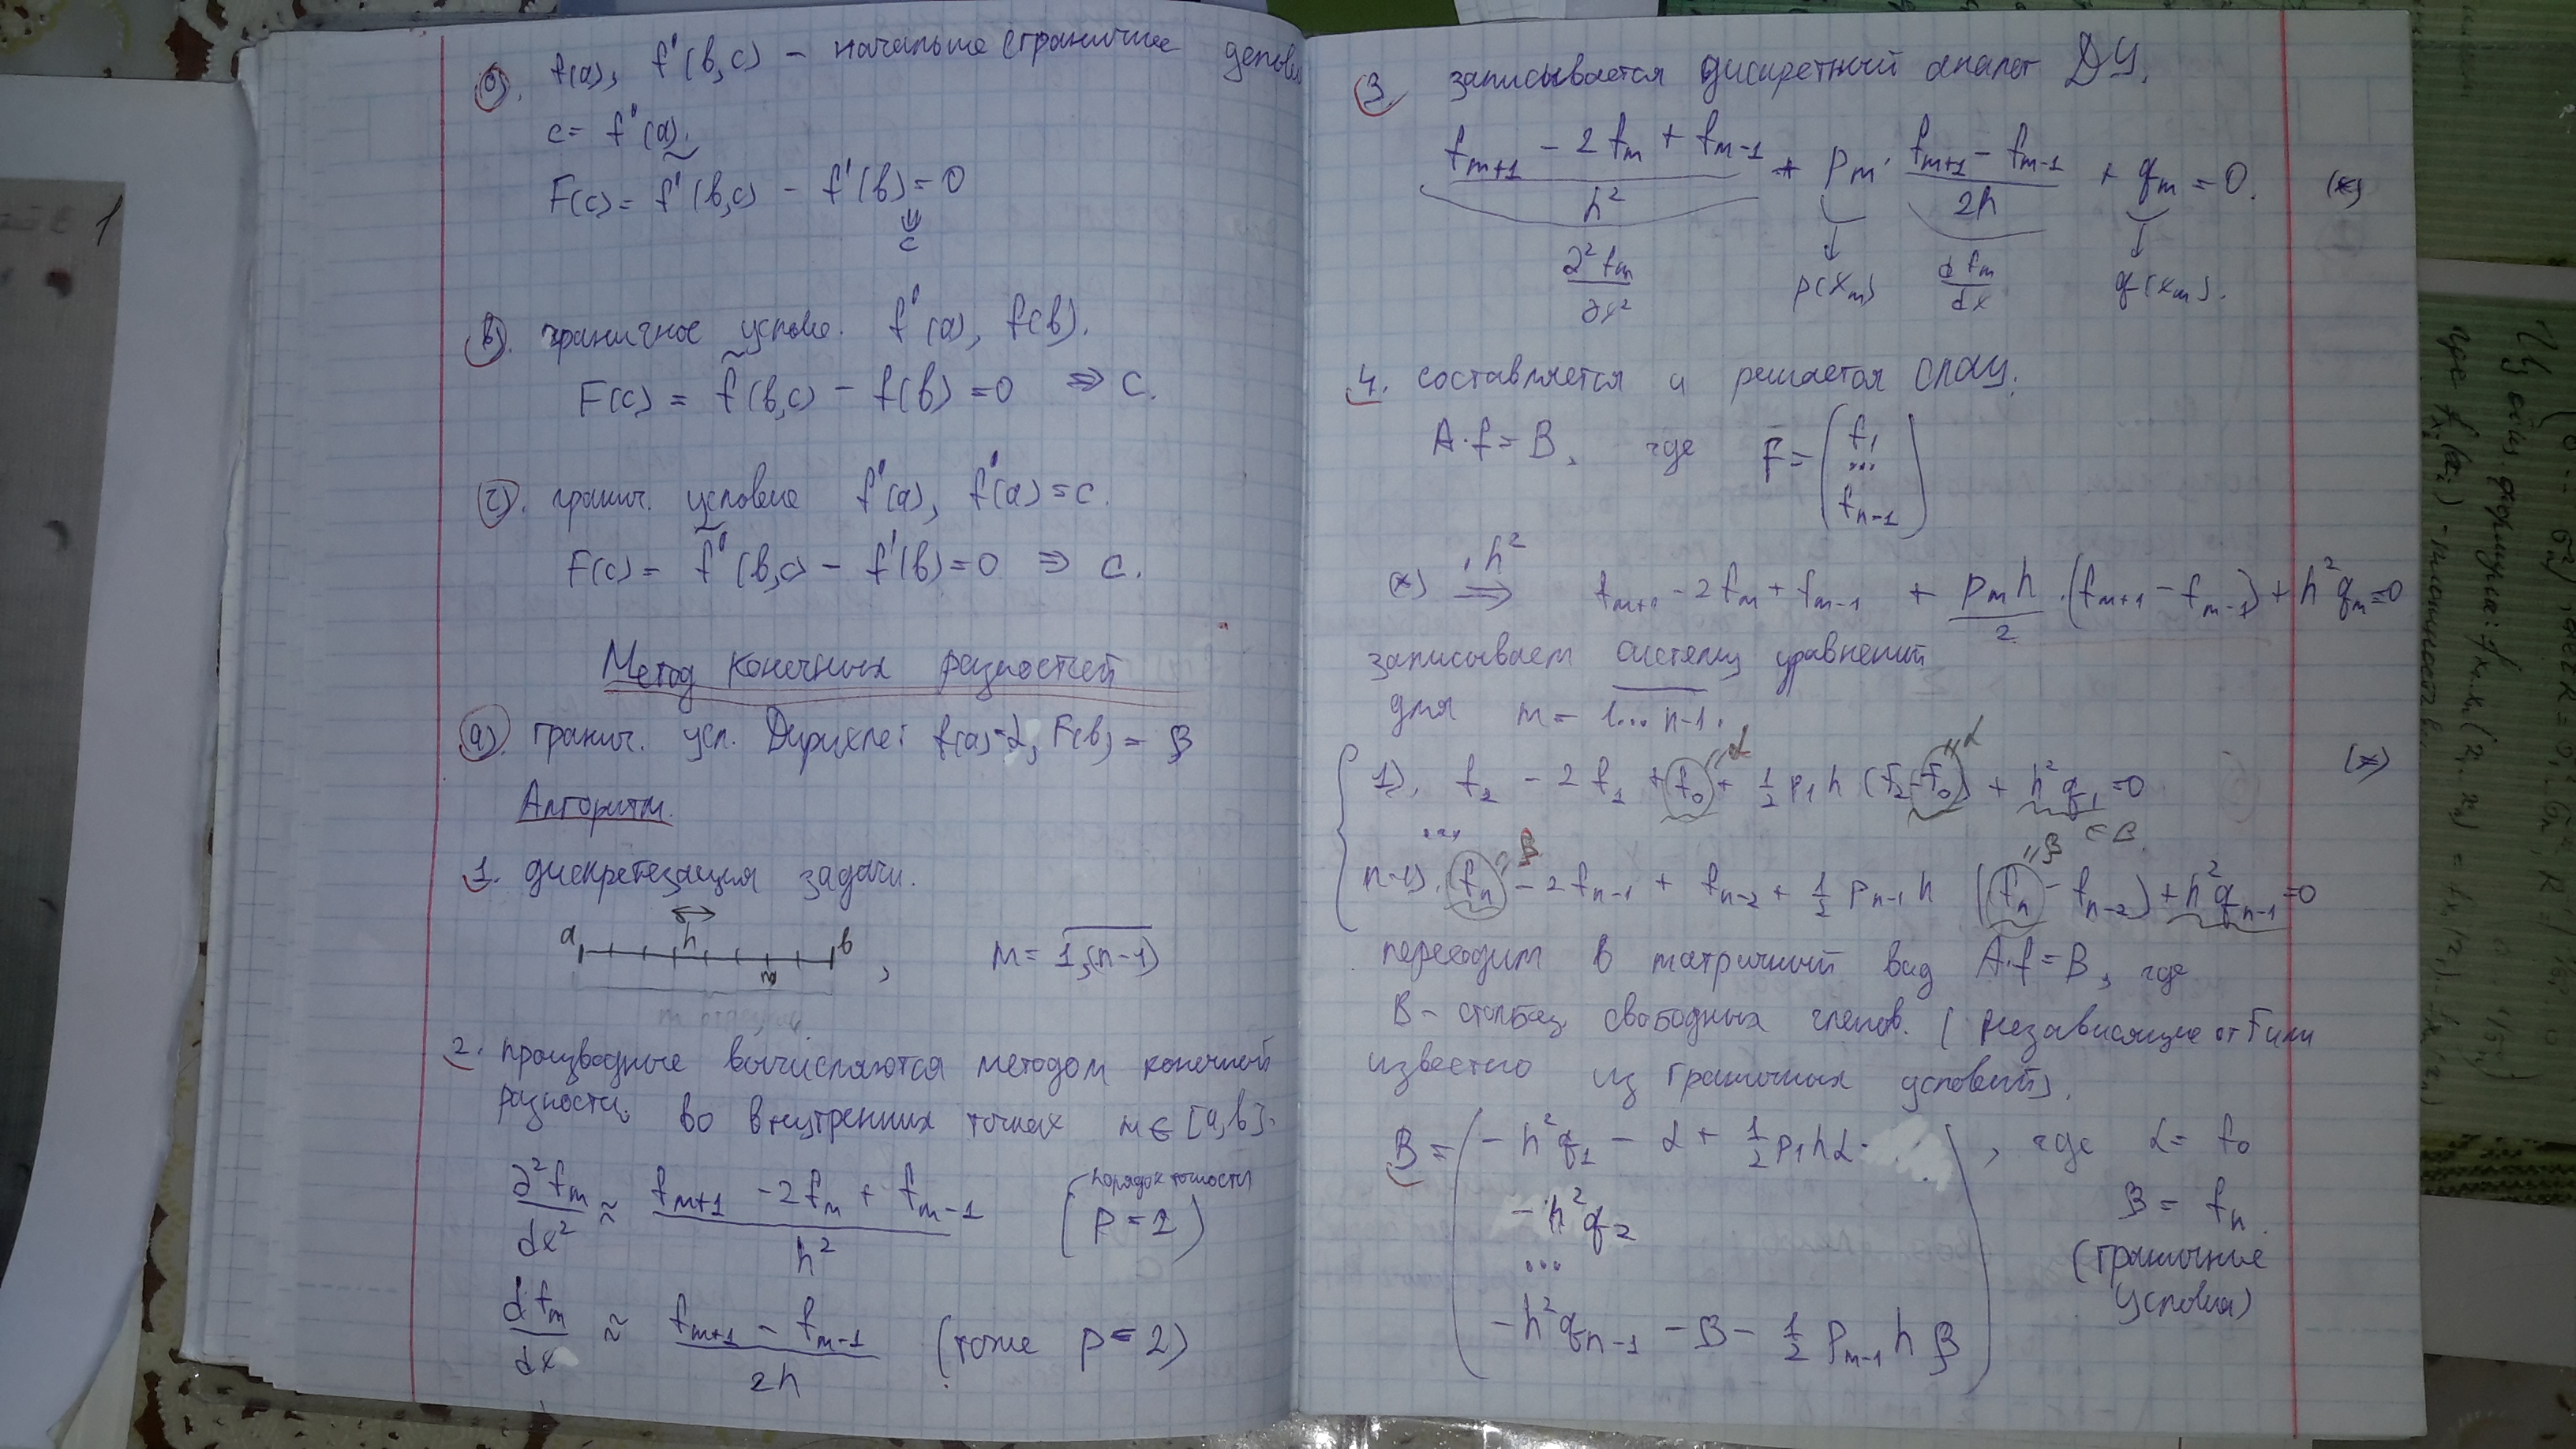 а). f(a), f'(b,c) – начальные (граничные услови
c = f'(a).
F(c) = f'(b,c) – f'(b) = 0
⇓
c
в). граничное условие. f'(a), f(b).
F(c) = f(b,c) – f(b) = 0 ⇒ c.
с). гранич. условие f'(a), f(a) = c.
F(c) = f'(b,c) – f'(b) = 0 ⇒ c.
Метод конечных разностей
а). гранич. усл. Дирихле: f(a)=α, f(b) = β
Алгоритм.
1. дискретизация задачи.
a h m b , m = 1,(n-1)
2. производные вычисляются методом конечных
разностей во внутренних точках m ∈ [a,b].
d²fm/dx² ≈ (fm+1 – 2fm + fm-1)/h² (порядок точности p = 2)
dfm/dx ≈ (fm+1 – fm-1)/2h (тоже p = 2)
3. записывается дискретный аналог ДУ.
(fm+1 – 2fm + fm-1)/h² + pm · (fm+1 – fm-1)/2h + qm = 0. (*)
d²fm/dx² p(xm) dfm/dx q(xm).
4. составляется и решается СЛАУ.
A·f = B, где F = (f1 ... fn-1)
(*) ·h² ⇒ fm+1 – 2fm + fm-1 + pmh/2 · (fm+1 – fm-1) + h²qm = 0
записываем систему уравнений
для m = 1...n-1.
1). f2 – 2f1 + f0 + 1/2 p1h (f2 – f0) + h²q1 = 0 (*)
"α "α ∈B
...
n-1). fn – 2fn-1 + fn-2 + 1/2 pn-1h (fn – fn-2) + h²qn-1 = 0
"β "β ∈B
переходим в матричный вид A·f = B, где
B – столбец свободных членов. (независящие от F или
известно из граничных условий).
B = ( –h²q1 – α + 1/2 p1hα , где α = f0
–h²q2 β = fn
... (граничные
–h²qn-1 – β – 1/2 pn-1hβ ) условия)
Из общ. формула: